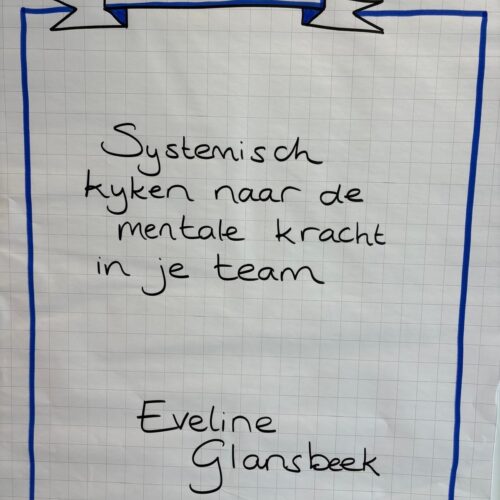 Systemisch
kyken naar de
mentale kracht
in je team
Eveline
Glansbeek